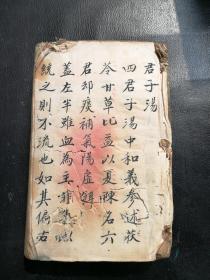 君子湯
四君子湯中和義參述茯
苓甘草比益以夏陳名六
君祛痰補氣陽虛
蓋左半雖血為主非
統之則不流也如其偏右